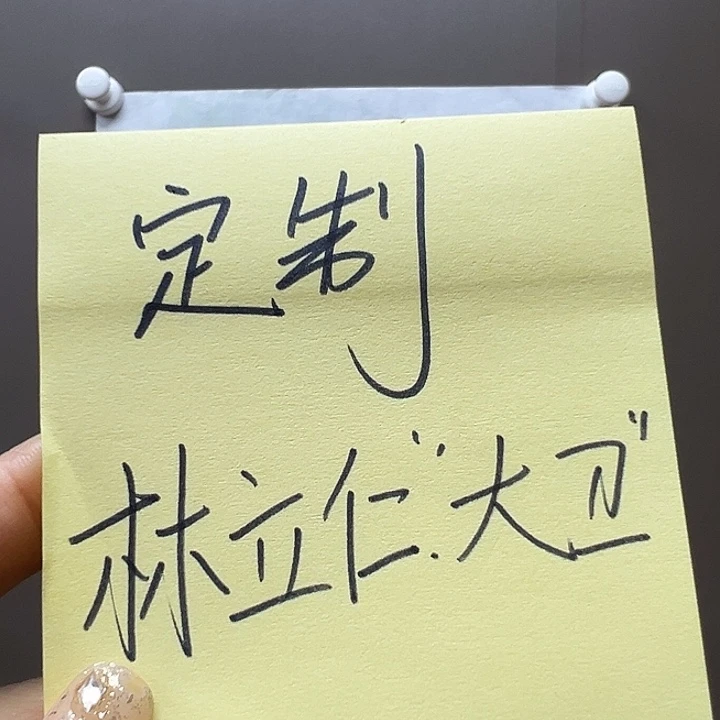 定制
林立仁.“大卫”